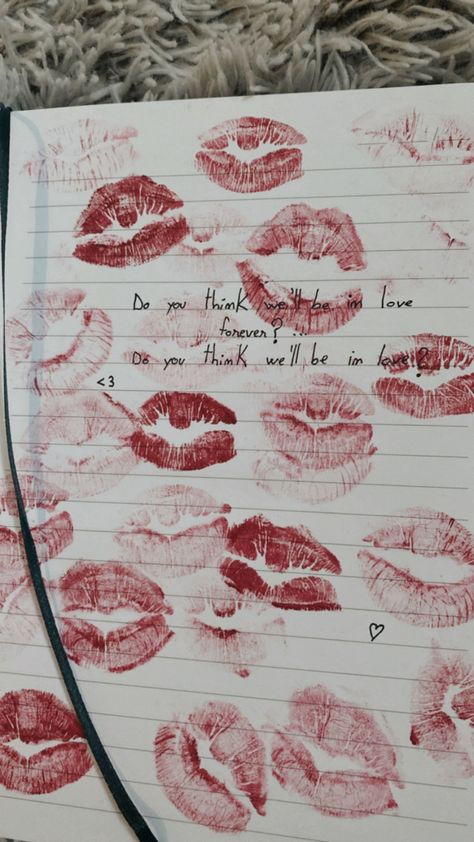 Do you think we'll be in love
forever?...
Do you think we'll be in love?
<3